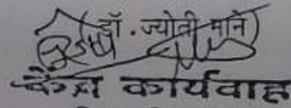 (डॉ. ज्योती माने)
केंद्र कार्यवाह